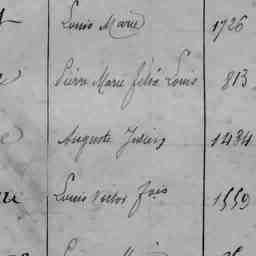 Louis Marie 1726
Pierre Marie félix Louis 813
Auguste Julien 1434
Louis Victor fçois 1559